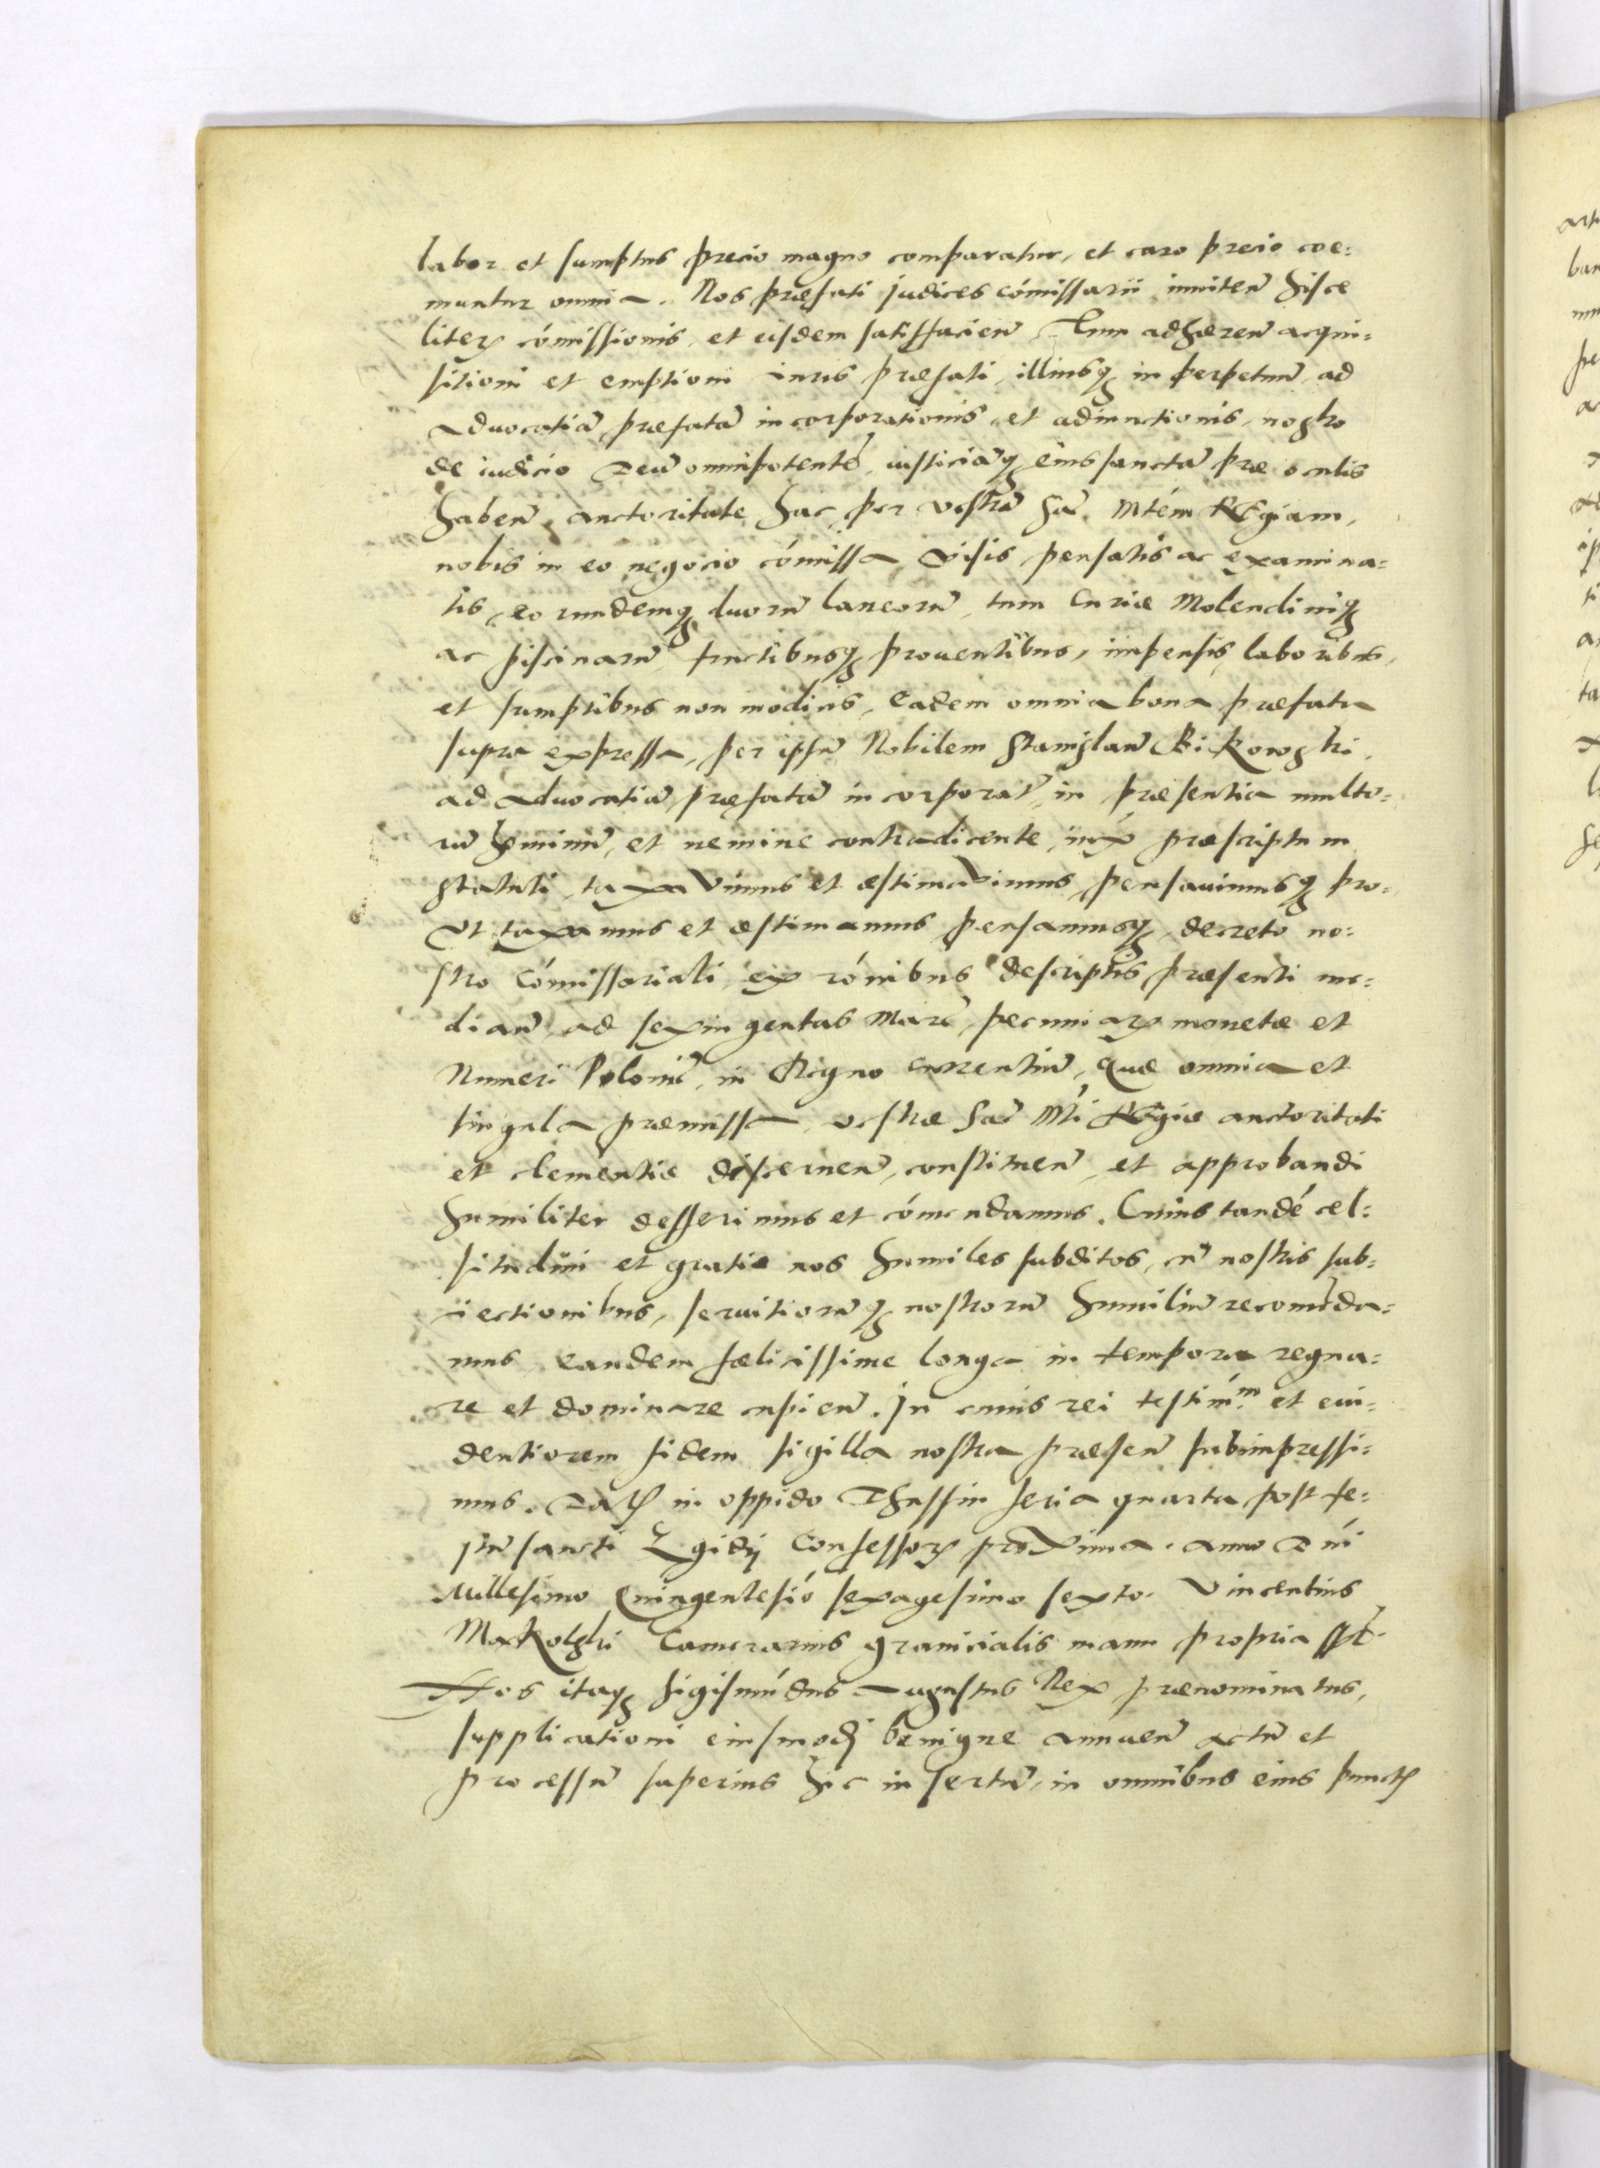 labor et sumptus precio magno comparatur, et caro precio coe=
muntur omnia. Nos præfati judices cōmissarii, inniteñ hisce
literꝭ cōmissionis, et eisdem satisfacieñ. Tum adhæreñ acqui=
sitioni et emptioni iuris præfati, illiusqꝫ in perpetuū, ad
advocatiā præfatā incorporationis, et adiunctionis, nostro
de iudicio Deū omnipotentē, iusticiāqꝫ eius sanctā præ oculis
habeñ, auctoritate hac, per vestrā Sac̄. Mtém REgiam,
nobis in eo negocio cōmissa, visis, pensatis ac examina=
tis, eorundemqꝫ duorū laneorū, tum Curiæ Molendiniqꝫ
ac piscinarū fructibusqꝫ prouentibus, impensis, laboribus,
et sumptibus non modicis, Eadem omnia bona præfata
supra expressa, per ipsū Nobilem Stanislaū Bikowski,
ad advocatiā præfatā incorporat̄, in præsentia multo=
rū hominū, et nemine contradicente, iuxᵃ præscriptum
Statuti, taxavimus et æstimavimus, pensauimusqꝫ pro=
Vt taxamus et æstimamus pensamusqꝫ, decreto no=
stro Cōmissoriali, ex rōnibus descriptis, præsenti me=
dian̄, ad sexingentas Marc̄, pecuniarꝭ monetæ et
Numeri Polonic̄, in Regno currentiū, Quæ omnia et
singula præmissa, vestræ Sac̄ Mti REgiæ auctoritati
et clementiæ discerneñ, constitueñ, et approbandi
humiliter defferimus et cōmendamus. Cuius tandē cel=
situdini et gratiæ nos humiles subditos, cū nostris sub=
iectionibus, servitiorūqꝫ nostrorū humiliū recomēda=
mus, eandem fœlicissime longa in tempora regna=
re et dominare cupieñ. In cuius rei testim̄.ᵐ et eui=
dentiorem fidem sigilla nostra præseñ subimpressi=
mus. Datꝭ in oppido Thussin feria quarta post fe=
stū sancti Egidij Confessorꝭ proxima. anno Dñi
Millesimo Quingentesiō sexagesimo sexto. Vincentius
Makolski Camerarius granicialis manu propria sst.
Nos itaqꝫ Sigismūdus Augustus Rex prænominatus,
supplicationi eiusmodi benigne annueñ actū et
processū superius hic insertū, in omnibus eius punctꝭ